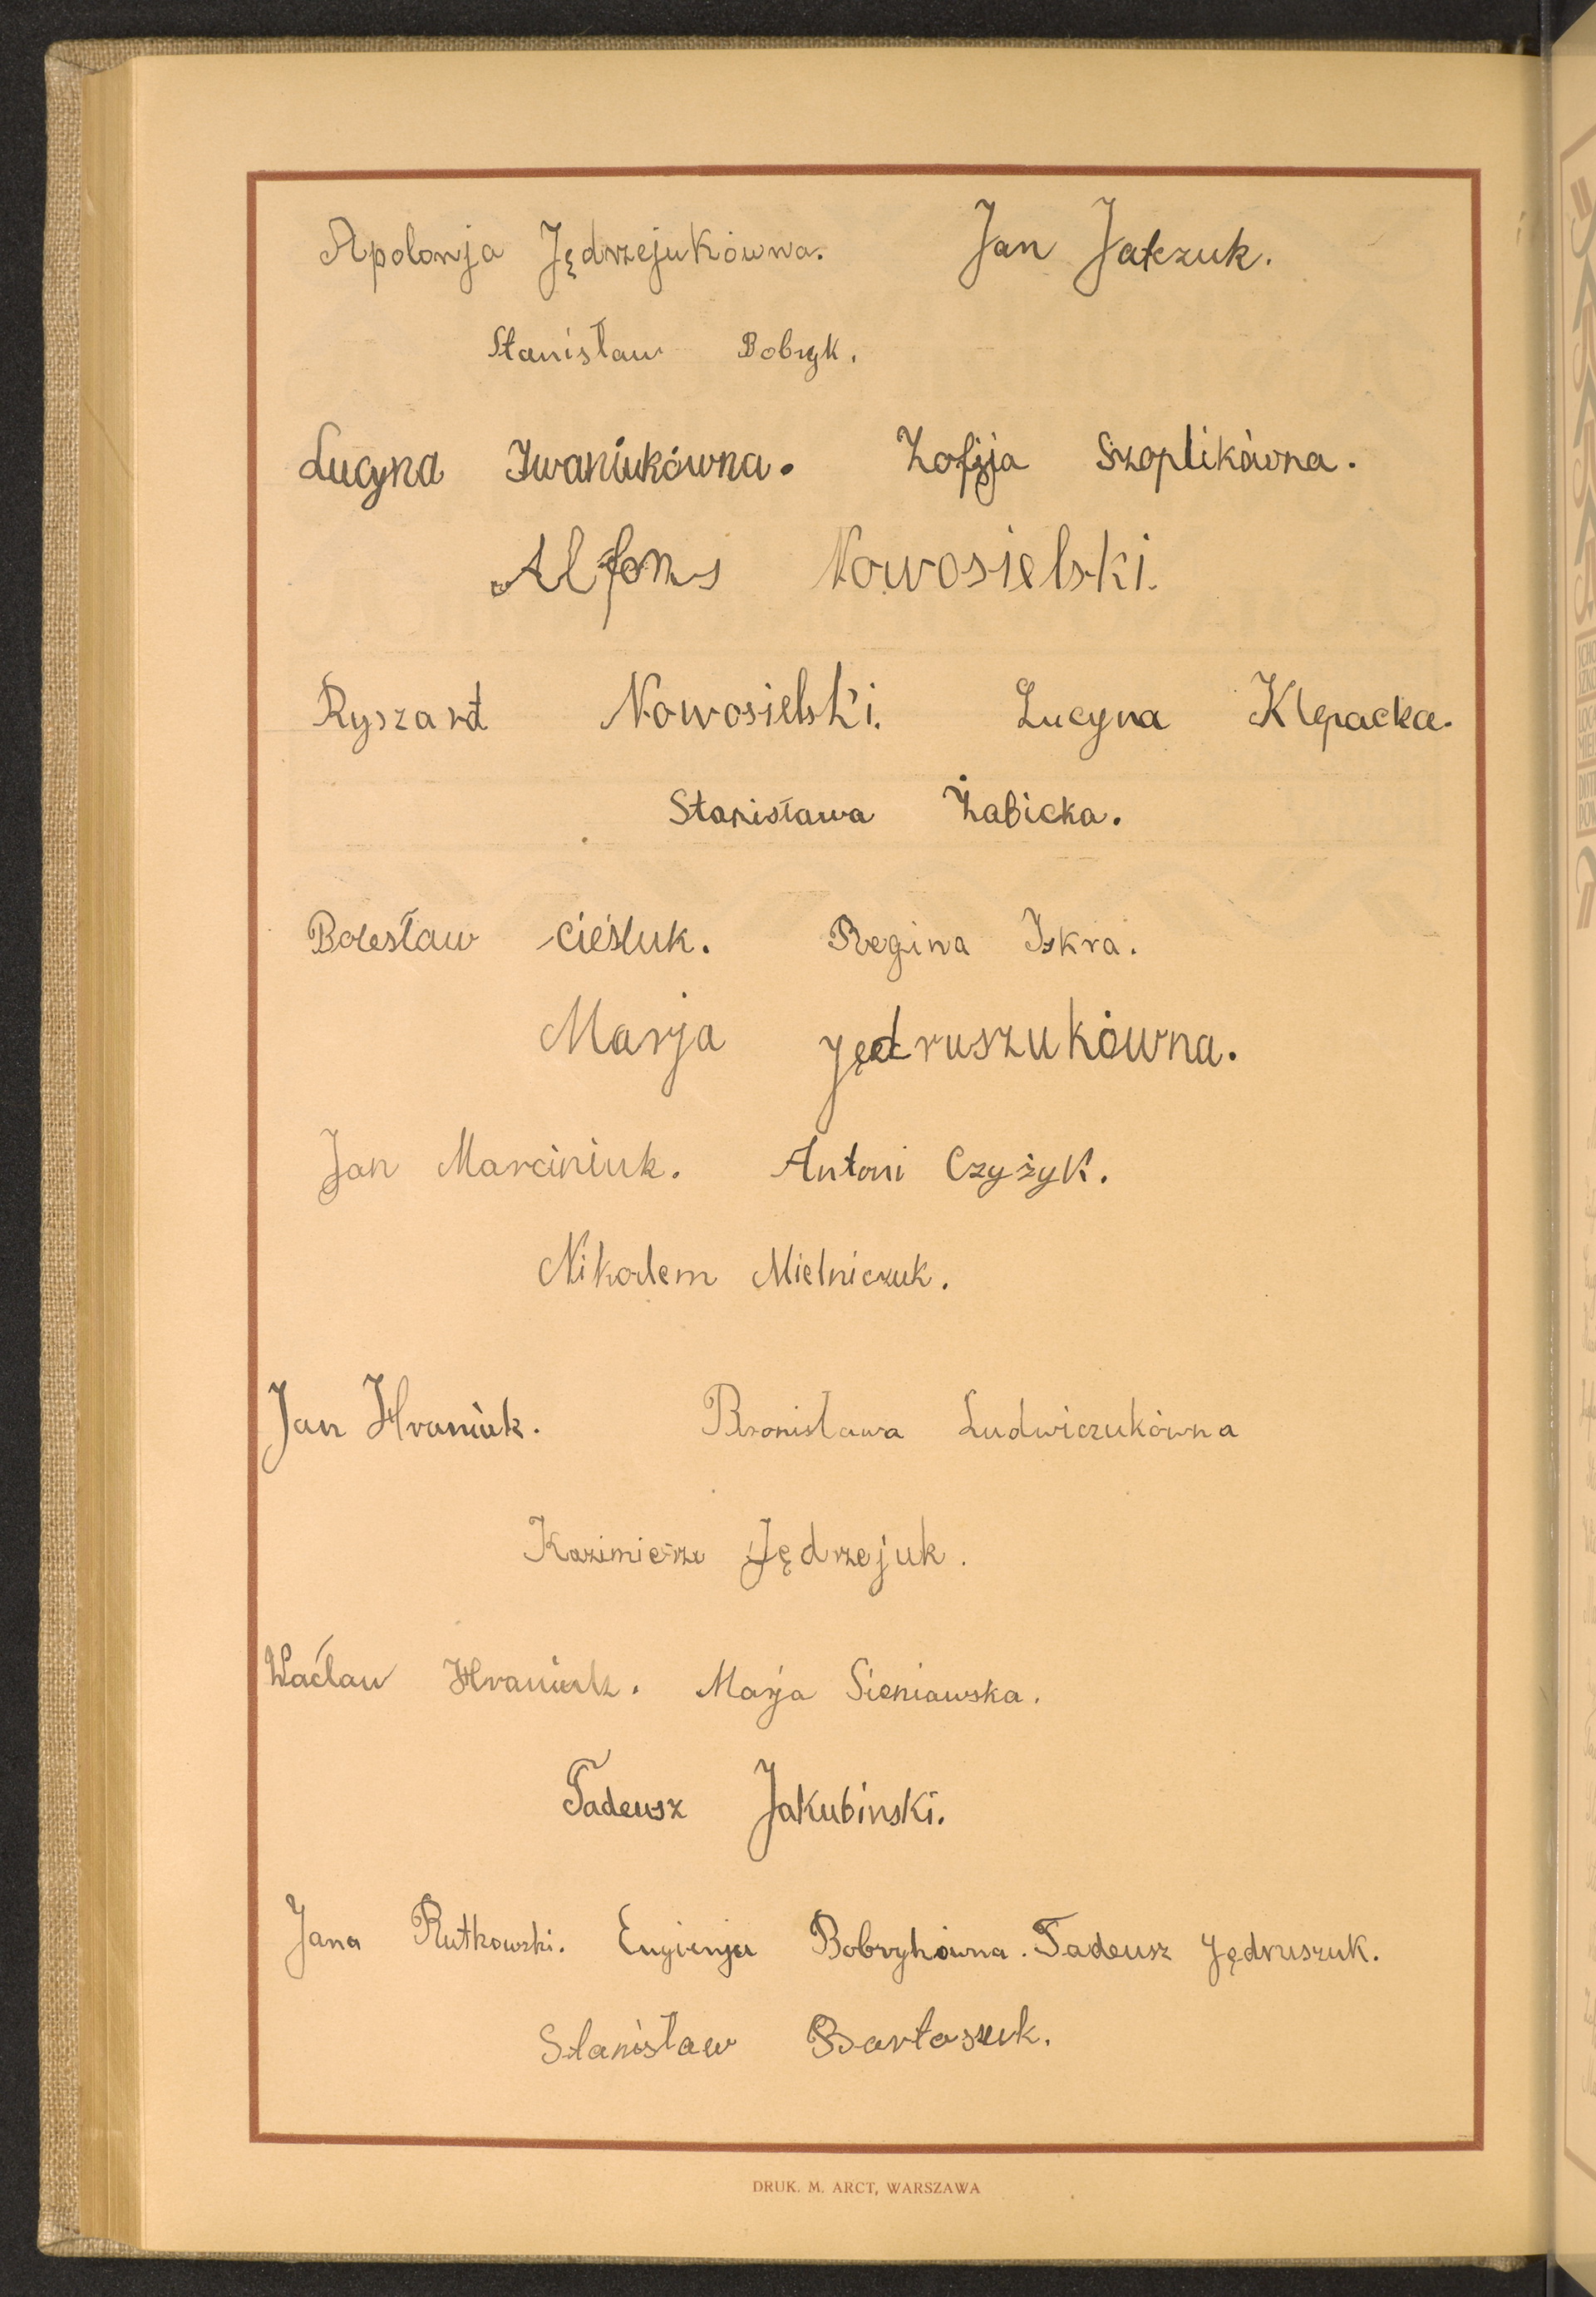 Apolonja Jędrzejukówna. Jan Jatczuk.
Stanisław Bobryk.
Lucyna Iwaniukówna. Zofija Szoplikówna.
Alfons Nowosielski.
Ryszard Nowosielski. Lucyna Klepacka.
Stanisława Żabicka.
Bolesław Cieśluk. Regina Iskra.
Marja Jędruszukówna.
Jan Marciniuk. Antoni Czyżyk.
Nikodem Mielniczuk.
Jan Hraniuk. Bronisława Ludwiczukówna
Kazimierz Jędrzejuk.
Wacław Hraniuk. Marja Sieniawska.
Tadeusz Jakubinski.
Jana Rutkowski. Eugienja Bobrykówna. Tadeusz Jędruszuk.
Stanisław Bartoszuk.
DRUK. M. ARCT, WARSZAWA